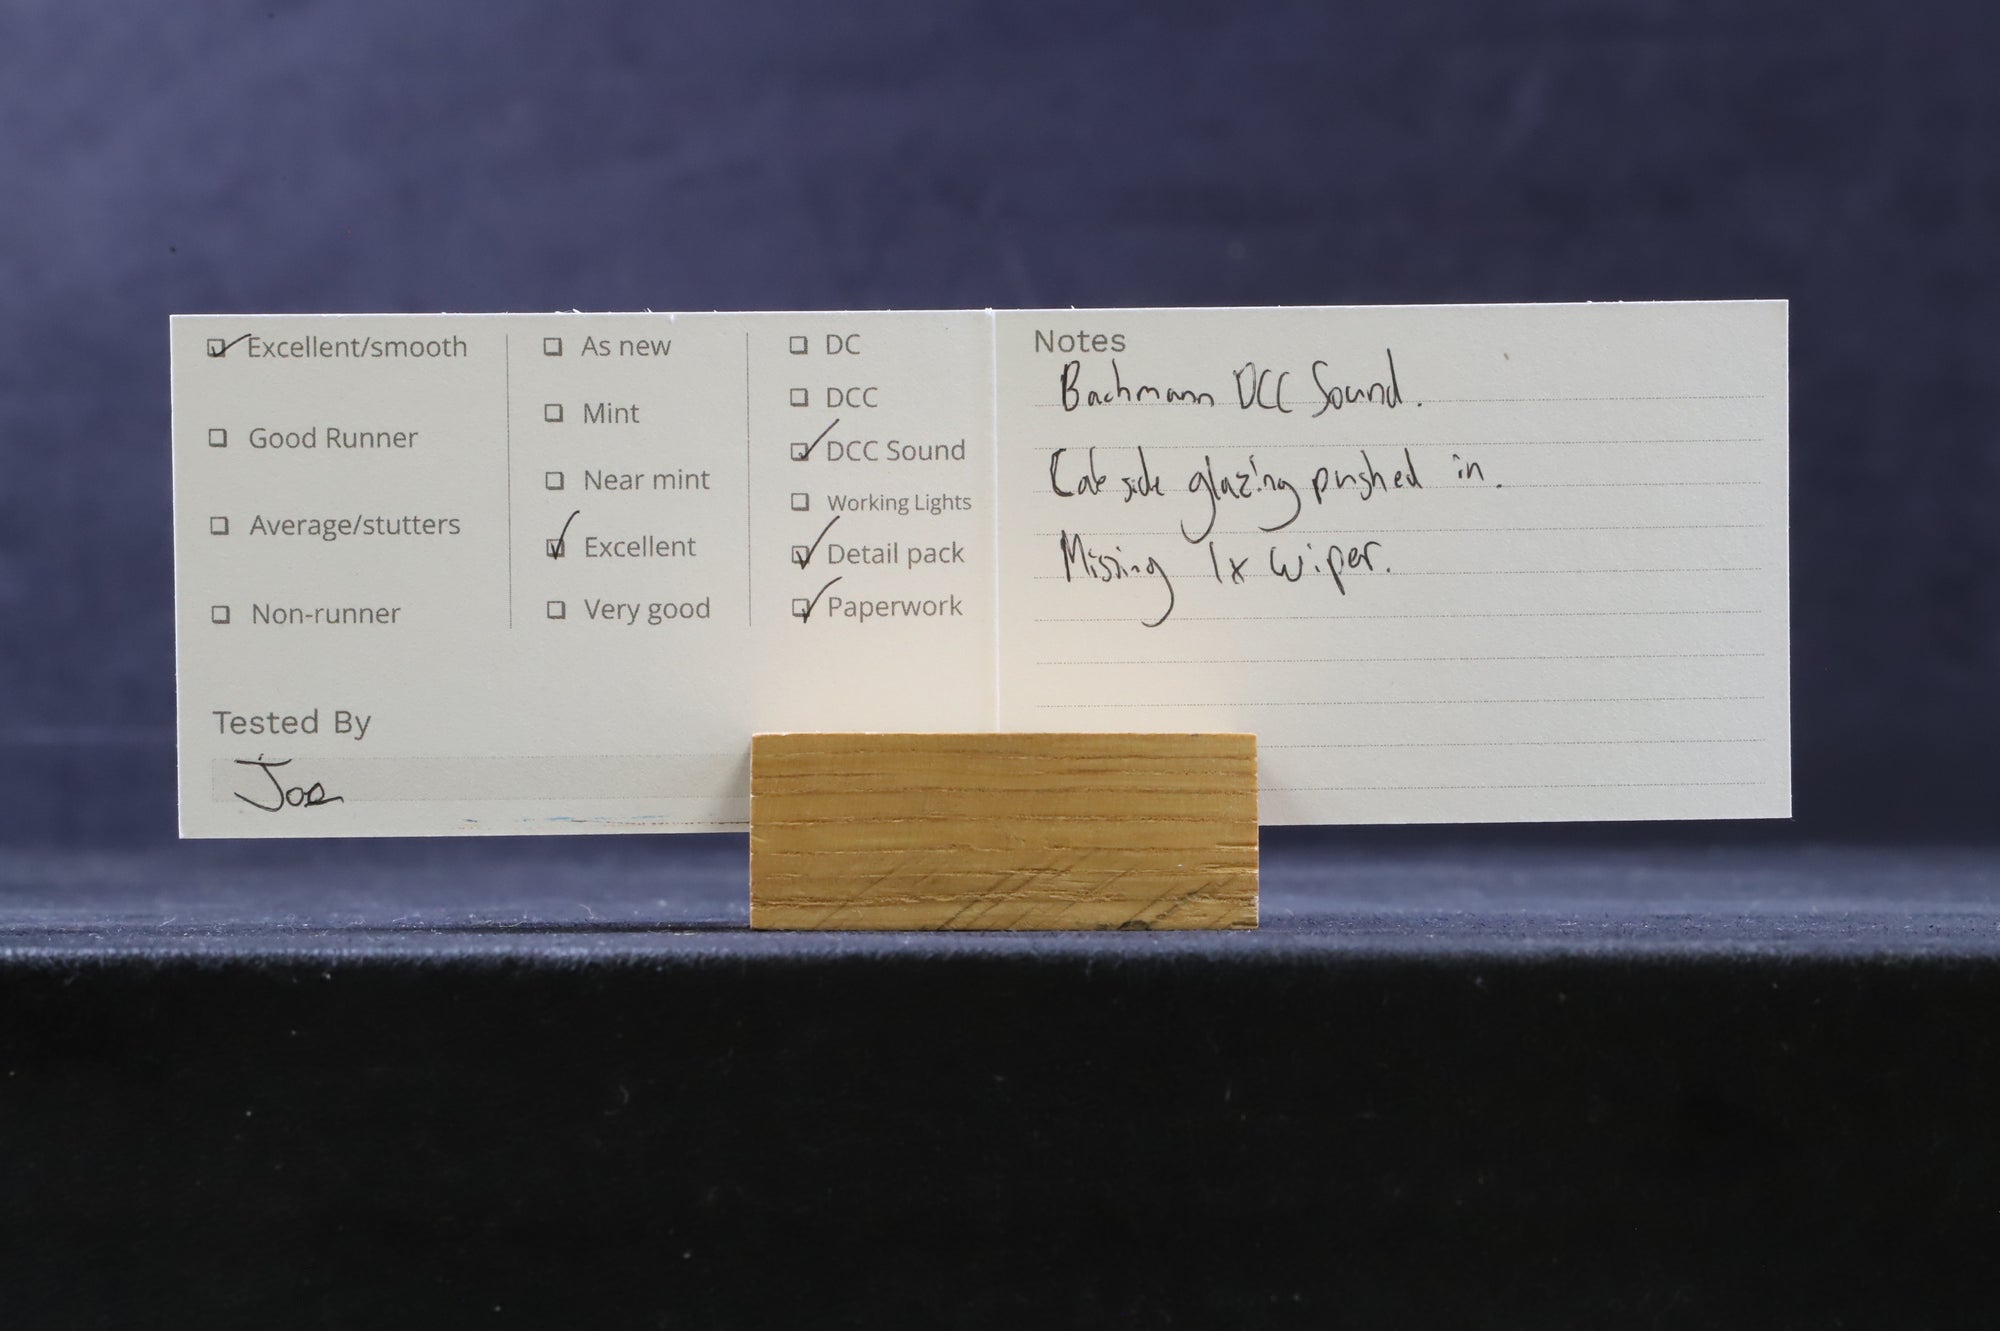 Excellent/smooth
Good Runner
Average/stutters
Non-runner
As new
Mint
Near mint
Excellent
Very good
DC
DCC
DCC Sound
Working Lights
Detail pack
Paperwork
Tested By
Joe
Notes
Bachmann DCC Sound.
side glazing pushed in.
Missing 1x wiper.